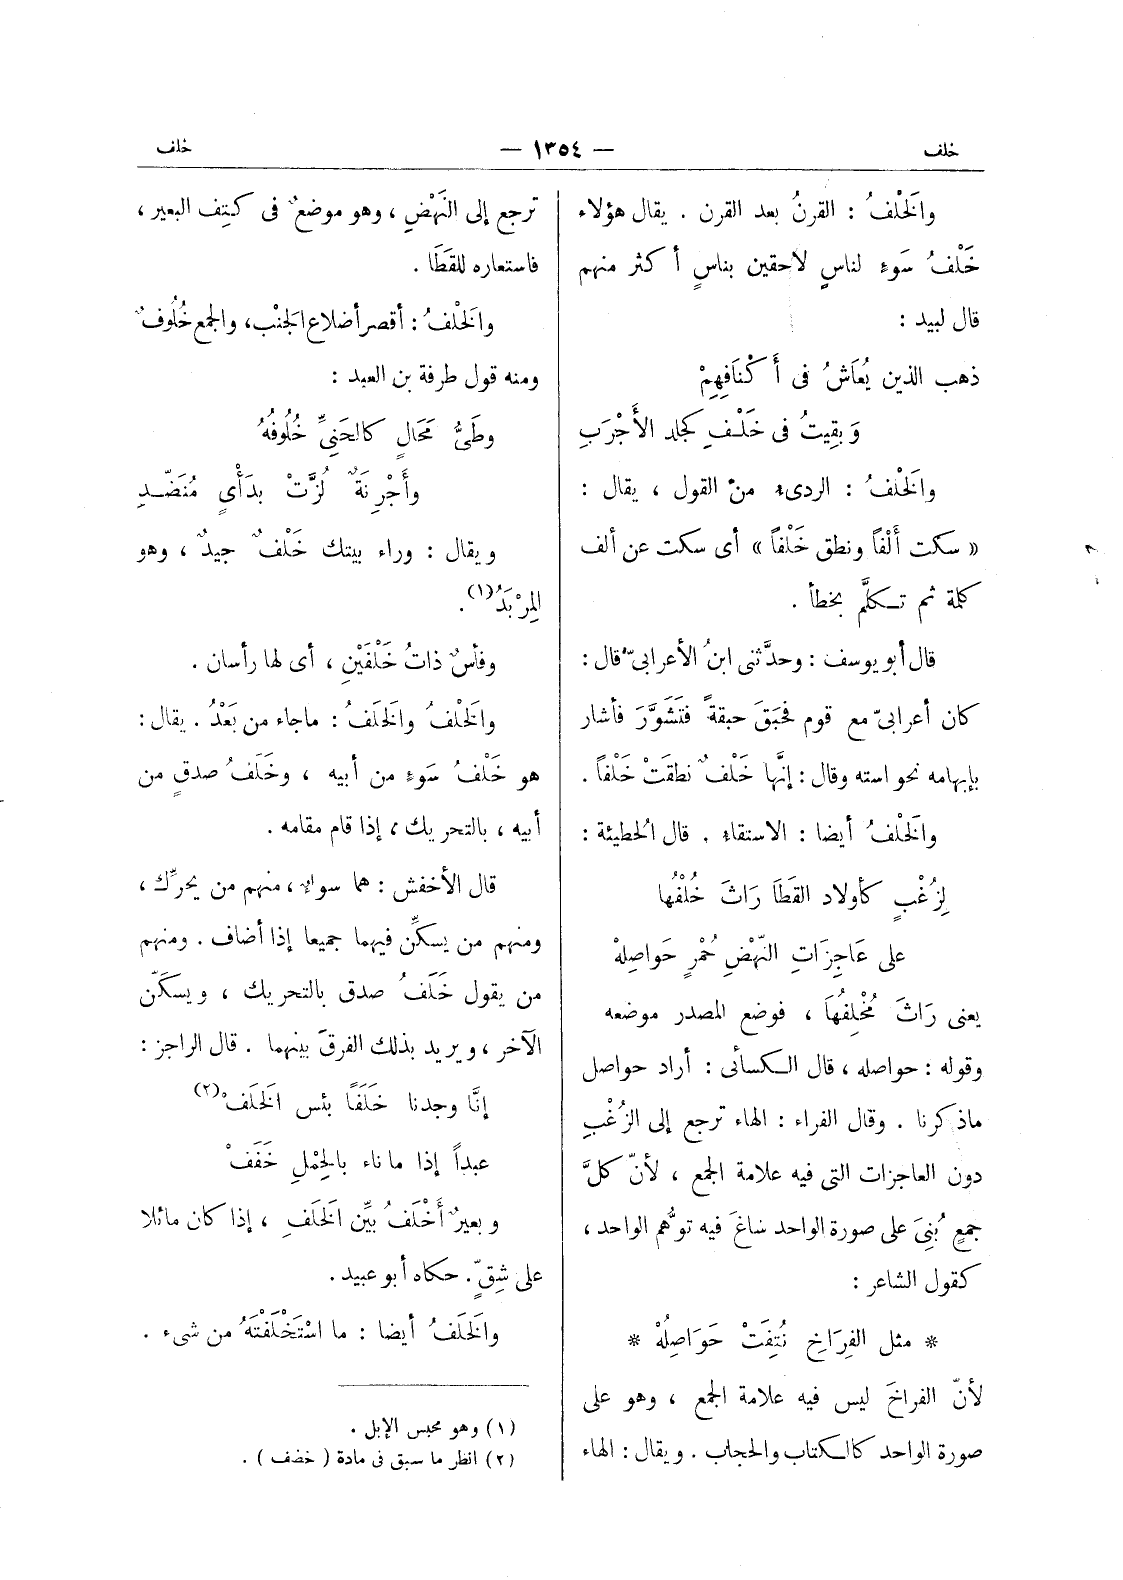 خلف
— ١٣٥٤ —
خلف
والَخْلفُ : القرنُ بعد القرن . يقال هؤلاء
خَلْفُ سَوءٍ لناسٍ لاحقين بناسٍ أكثر منهم
قال لبيد :
ذهب الذين يُعَاشُ فى أَكْنَافِهِمْ
وَبقِيتُ فى خَلْفٍ كجلد الأَجْرَبِ
والَخْلفُ : الردىء من القول ، يقال :
« سكت أَلْفاً ونطق خَلْفاً » أى سكت عن ألف
كلمة ثم تكلَّم بخطأ .
قال أبو يوسف : وحدَّثنى ابنُ الأعرابىّ قال :
كان أعرابىّ مع قوم فحَبَقَ حبقةً فتَشَوَّرَ فأشار
بإبهامه نحو استه وقال : إنَّها خَلْفٌ نطقَتْ خَلْفاً .
والَخْلفُ أيضا : الاستقاء . قال الحطيئة :
لِزُغْبٍ كأولاد القَطَا رَاثَ خُلْفُها
على عَاجِزَاتِ النّهْضِ حُمْرٍ حَواصِلهْ
يعنى رَاثَ مُخْلِفُهَا ، فوضع المصدر موضعه
وقوله : حواصله ، قال الكسائى : أراد حواصل
ماذكرنا . وقال الفراء : الهاء ترجع إلى الزُغْبِ
دون العاجزات التى فيه علامة الجمع ، لأنّ كلَّ
جمعٍ بُنِىَ على صورة الواحد ساغَ فيه توهُّم الواحد ،
كقول الشاعر :
* مثل الفِرَاخِ نُتِفَتْ حَوَاصِلُهْ *
لأنّ الفراخَ ليس فيه علامة الجمع ، وهو على
صورة الواحد كالكتاب والحجاب . ويقال : الهاء
ترجع إلى النَهْضِ ، وهو موضعٌ فى كتِف البعير ،
فاستعاره للقَطَا .
والَخْلفُ : أقصر أضلاع الجنْب، والجمع خُلُوفٌ
ومنه قول طرفة بن العبد :
وطَىُّ مَحَالٍ كالحَنِىِّ خُلُوفُهُ
وأَجْرِنَةٌ لُزَّتْ بدَأْىٍ مُنَضَّدِ
ويقال : وراء بيتك خَلْفٌ جيدٌ ، وهو
المِرْبَدُ(١).
وفأسٌ ذاتُ خَلْفَيْنِ ، أى لها رأسان .
والَخْلفُ والَخلَفُ : ماجاء من بَعْدُ . يقال :
هو خَلْفُ سَوءٍ من أبيه ، وخَلَفُ صدقٍ من
أبيه ، بالتحريك ، إذا قام مقامه .
قال الأخفش : هما سواء ، منهم من يحرِّك ،
ومنهم من يسكِّن فيهما جميعا إذا أضاف . ومنهم
من يقول خَلَفُ صدق بالتحريك ، ويسكّن
الآخر ، ويريد بذلك الفرقَ بينهما . قال الراجز :
إنَّا وجدنا خَلَفًا بئس الَخلَفْ(٢)
عبداً إذا ماناء بالِحْملِ خَضَفْ
وبعيرٌ أَخْلَفُ بيِّن الَخلَفِ ، إذا كان مائلا
على شِقٍّ . حكاه أبو عبيد .
والَخلَفُ أيضا : ما اسْتَخْلَفْتَهُ من شىء .
(١) وهو محبس الإبل .
(٢) انظر ما سبق فى مادة ( خضف ) .